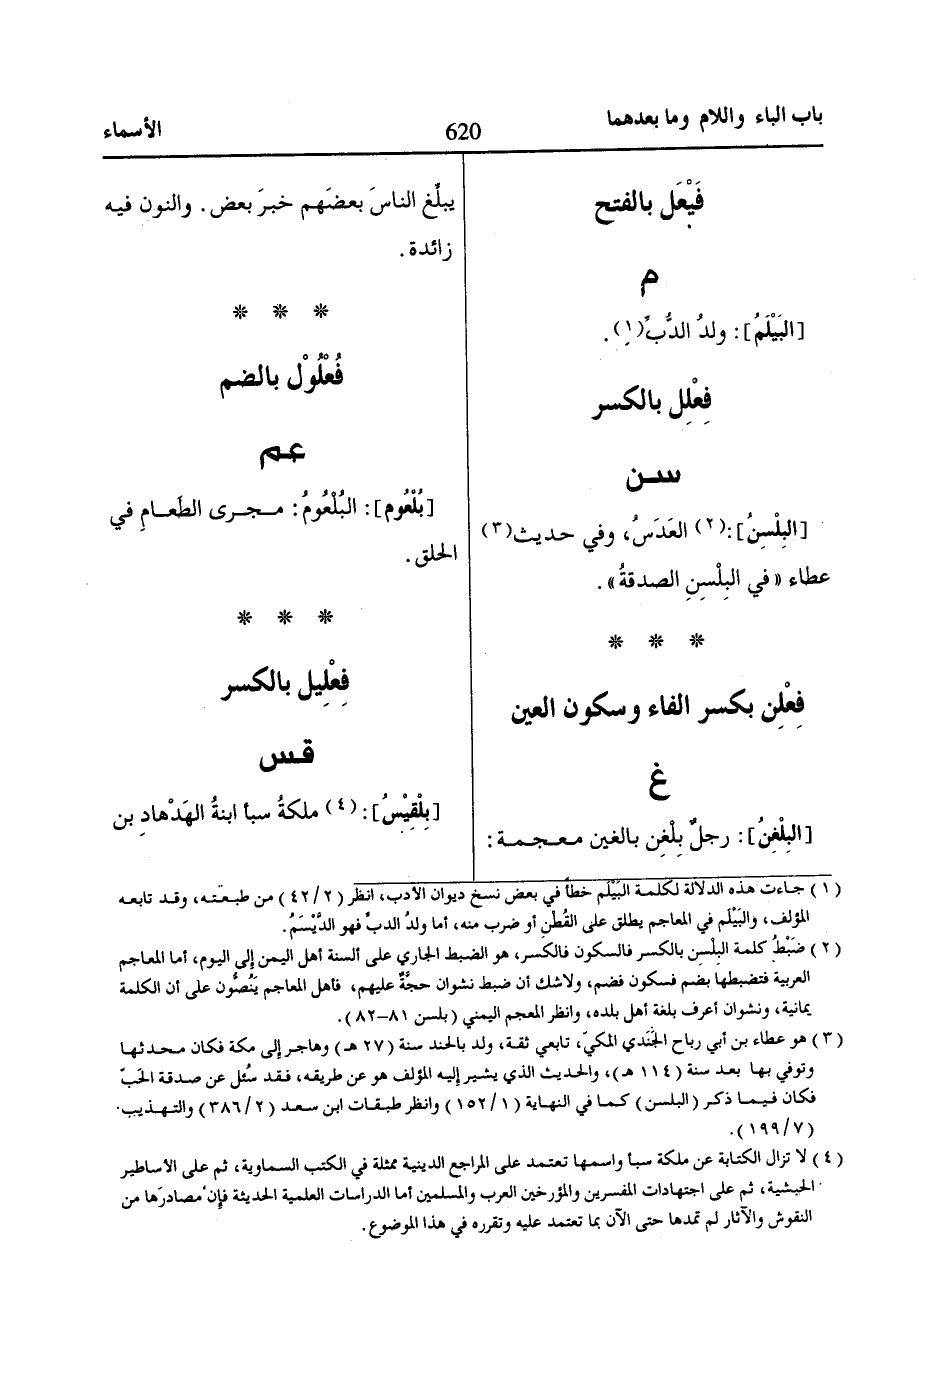 باب الباء واللام وما بعدهما
620
الأسماء
فَيْعَل بالفتح
م
[البَيْلَمُ]: ولدُ الدُّبِّ(١).
فِعْلِل بالكسر
سـن
[البِلْسِنُ]:(٢) العَدَسُ، وفي حديث(٣)
عطاء «في البِلْسِنِ الصدقةُ».
* * *
فِعْلِن بكسر الفاء وسكون العين
غ
[البِلْغِنُ]: رجلٌ بِلْغِن بالغين معجمة:
يبلِّغ الناسَ بعضَهم خبرَ بعض. والنون فيه
زائدة.
* * *
فُعْلُوْل بالضم
عـم
[بُلْعُوم]: البُلْعُومُ: مجرى الطَعامِ في
الحلق.
* * *
فِعْلِيل بالكسر
قـس
[بِلْقِيْسُ]:(٤) ملكةُ سبأ ابنةُ الهَدْهادِ بن
(١) جاءت هذه الدلالة لكلمة البَيْلَم خطأً في بعض نسخ ديوان الأدب، انظر (٢/ ٤٢) من طبعته، وقد تابعه
المؤلف، والبَيْلَم في المعاجم يطلق على القُطْنِ أو ضرب منه، أما ولدُ الدبِّ فهو الدَّيْسَمُ.
(٢) ضَبْطُ كلمة البِلْسِن بالكسر فالسكون فالكسر، هو الضبط الجاري على ألسنة أهل اليمن إلى اليوم، أما المعاجم
العربية فتضبطها بضم فسكون فضم، ولاشك أن ضبط نشوان حجَّةٌ عليهم، فأهل المعاجم يَنُصُّون على أن الكلمة
يمانية، ونشوان أعرف بلغة أهل بلده، وانظر المعجم اليمني (بلسن ٨١–٨٢).
(٣) هو عطاء بن أبي رباح الجَنَدي المكيّ، تابعي ثقة، ولد بالجند سنة (٢٧ هـ) وهاجر إلى مكة فكان محدثها
وتوفي بها بعد سنة (١١٤ هـ)، والحديث الذي يشير إليه المؤلف هو عن طريقه، فقد سُئل عن صدقة الحَبّ
فكان فيما ذكر (البلسن) كما في النهاية (١/ ١٥٢) وانظر طبقات ابن سعد (٢/ ٣٨٦) والتهذيب
(٧/ ١٩٩).
(٤) لا تزال الكتابة عن ملكة سبأ واسمها تعتمد على المراجع الدينية ممثلة في الكتب السماوية، ثم على الأساطير
الحبشية، ثم على اجتهادات المفسرين والمؤرخين العرب والمسلمين أما الدراسات العلمية الحديثة فإن مصادرَها من
النقوش والآثار لم تمدها حتى الآن بما تعتمد عليه وتقرره في هذا الموضوع.